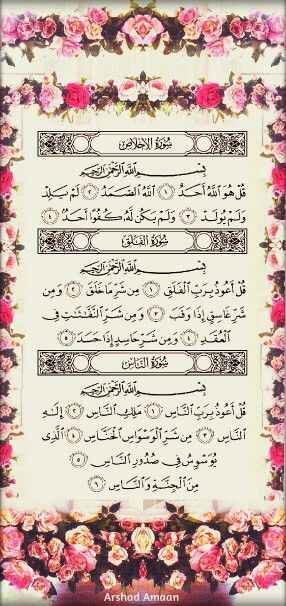 سُورَةُ الإِخْلَاصِ
بِسْمِ اللَّهِ الرَّحْمَٰنِ الرَّحِيمِ
قُلْ هُوَ اللَّهُ أَحَدٌ ١ اللَّهُ الصَّمَدُ ٢ لَمْ يَلِدْ
وَلَمْ يُولَدْ ٣ وَلَمْ يَكُن لَّهُ كُفُوًا أَحَدٌ ٤
سُورَةُ الفَلَقِ
بِسْمِ اللَّهِ الرَّحْمَٰنِ الرَّحِيمِ
قُلْ أَعُوذُ بِرَبِّ الْفَلَقِ ١ مِن شَرِّ مَا خَلَقَ ٢ وَمِن
شَرِّ غَاسِقٍ إِذَا وَقَبَ ٣ وَمِن شَرِّ النَّفَّاثَاتِ فِي
الْعُقَدِ ٤ وَمِن شَرِّ حَاسِدٍ إِذَا حَسَدَ ٥
سُورَةُ النَّاسِ
بِسْمِ اللَّهِ الرَّحْمَٰنِ الرَّحِيمِ
قُلْ أَعُوذُ بِرَبِّ النَّاسِ ١ مَلِكِ النَّاسِ ٢ إِلَٰهِ
النَّاسِ ٣ مِن شَرِّ الْوَسْوَاسِ الْخَنَّاسِ ٤ الَّذِي
يُوَسْوِسُ فِي صُدُورِ النَّاسِ ٥
مِنَ الْجِنَّةِ وَالنَّاسِ ٦
Arshad Amaan